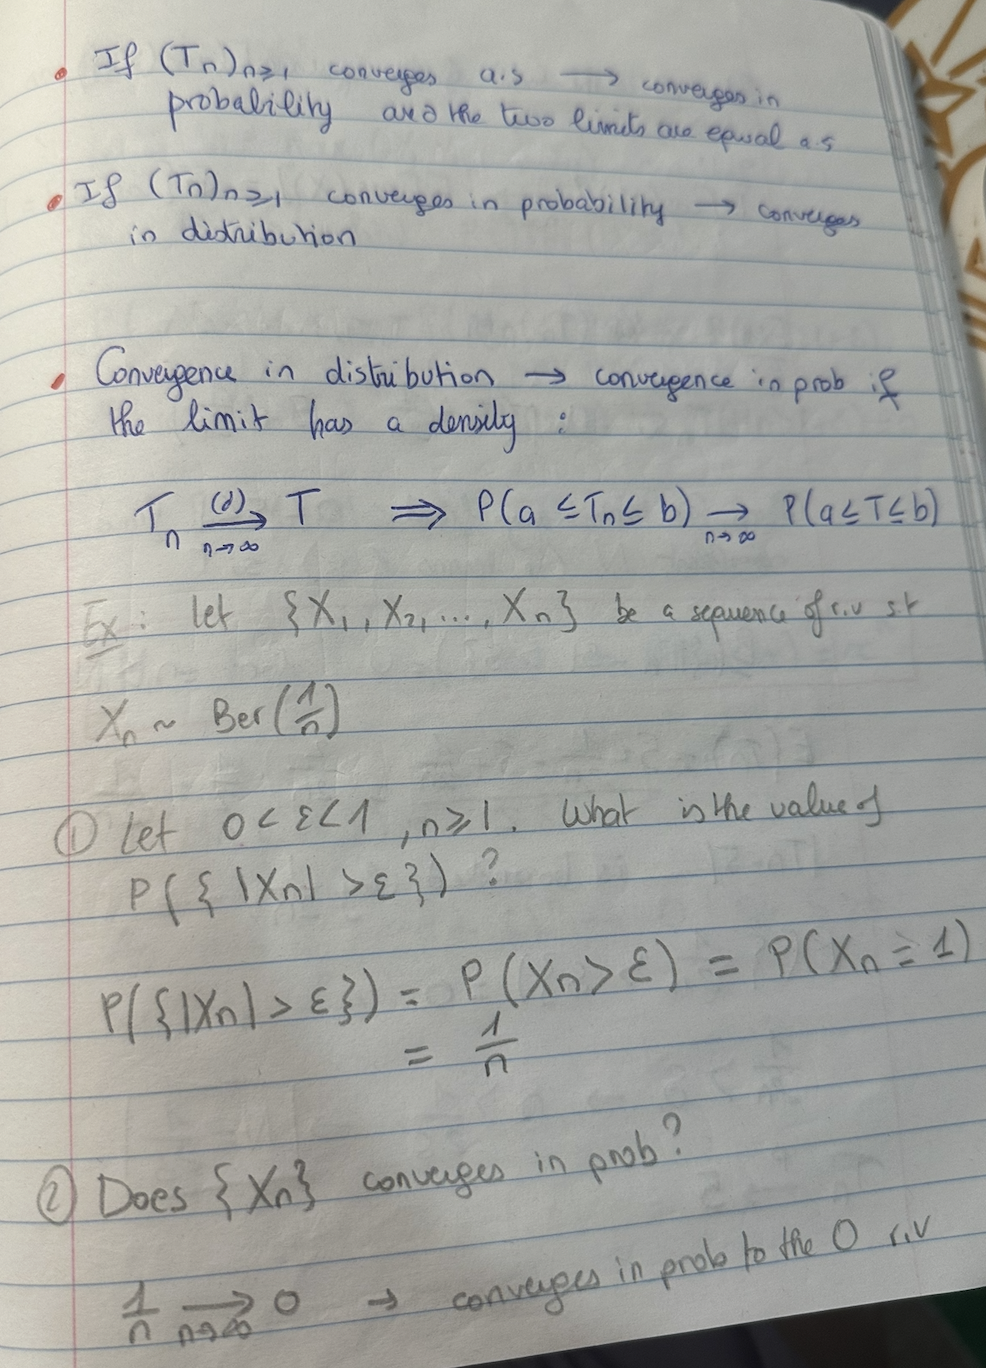 • If (Tn)n≥1 converges a.s → converges in
probability and the two limits are equal a.s
• If (Tn)n≥1 converges in probability → converges
in distribution
• Convergence in distribution → convergence in prob if
the limit has a density :
Tn (d)→ n→∞ T ⇒ P(a ≤ Tn ≤ b) → n→∞ P(a ≤ T ≤ b)
Ex : let {X₁, X₂, ..., Xn} be a sequence of r.v s.t
Xn ~ Ber(1/n)
① Let 0 < ε < 1, n ≥ 1. What is the value of
P({ |Xn| > ε}) ?
P({|Xn| > ε}) = P(Xn > ε) = P(Xn = 1)
= 1/n
② Does {Xn} converges in prob?
1/n → n→∞ 0 → converges in prob to the 0 r.v